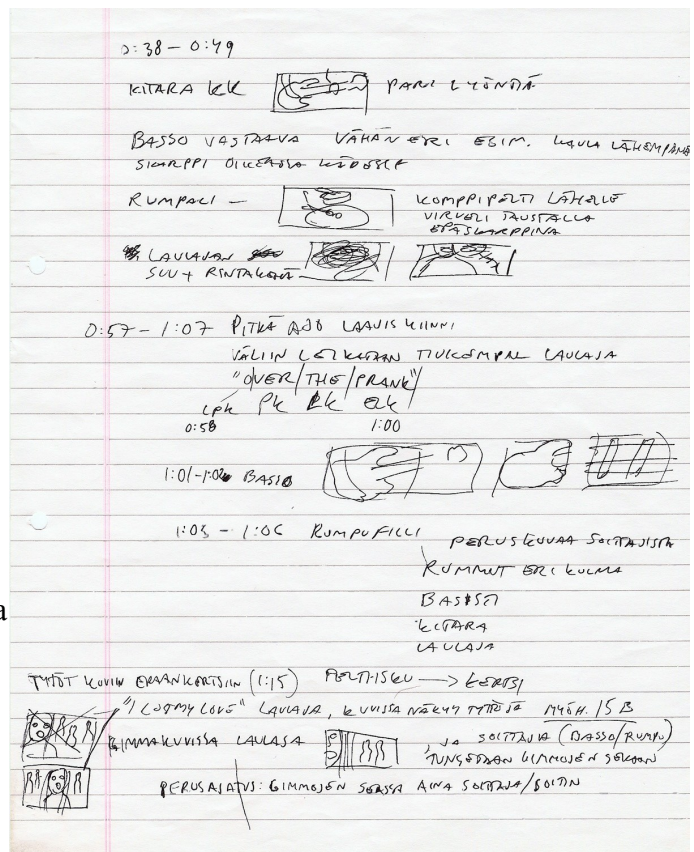 0:38 – 0:49
KITARA KK PARI LYÖNTIÄ
BASSO VASTAAVA VÄHÄN ERI ESIM. KAULA LÄHEMPÄNÄ
SKARPPI OIKEASSA KÄDESSÄ
RUMPALI – KOMPPIPELTI LÄHELLÄ
VIRVELI TAUSTALLA
EPÄSKARPPINA
LAULAJAN
SUU + RINTAKEHÄ
0:57 – 1:07 PITKÄ AJO LAAVIS KIINNI
VÄLIIN LEIKATAAN TIUKEMPAA LAULAJA
"OVER/THE/PRANK"/
LPK PK KK EK
0:58 1:00
1:01 – 1:02 BASSO
1:03 – 1:06 RUMPUFILLI
PERUSKUVAA SOITTAJISTA
RUMMUT ERI KULMA
BASISTI
KITARA
LAULAJA
a
TYTÖT KUVIN (1:15) PELTI-ISKU → KERTSI
"I LOST MY LOVE" LAULAJA, KUVISSA NÄKYY TYTTÖJÄ MYÖH. 15 B
GIMMAKUVISSA LAULAJA , JA SOITTAJIA (BASSO/RUMPU)
TUNGETAAN GIMMOJEN SEKAAN
PERUSAJATUS: GIMMOJEN SEASSA AINA SOITTAJA/SOITIN